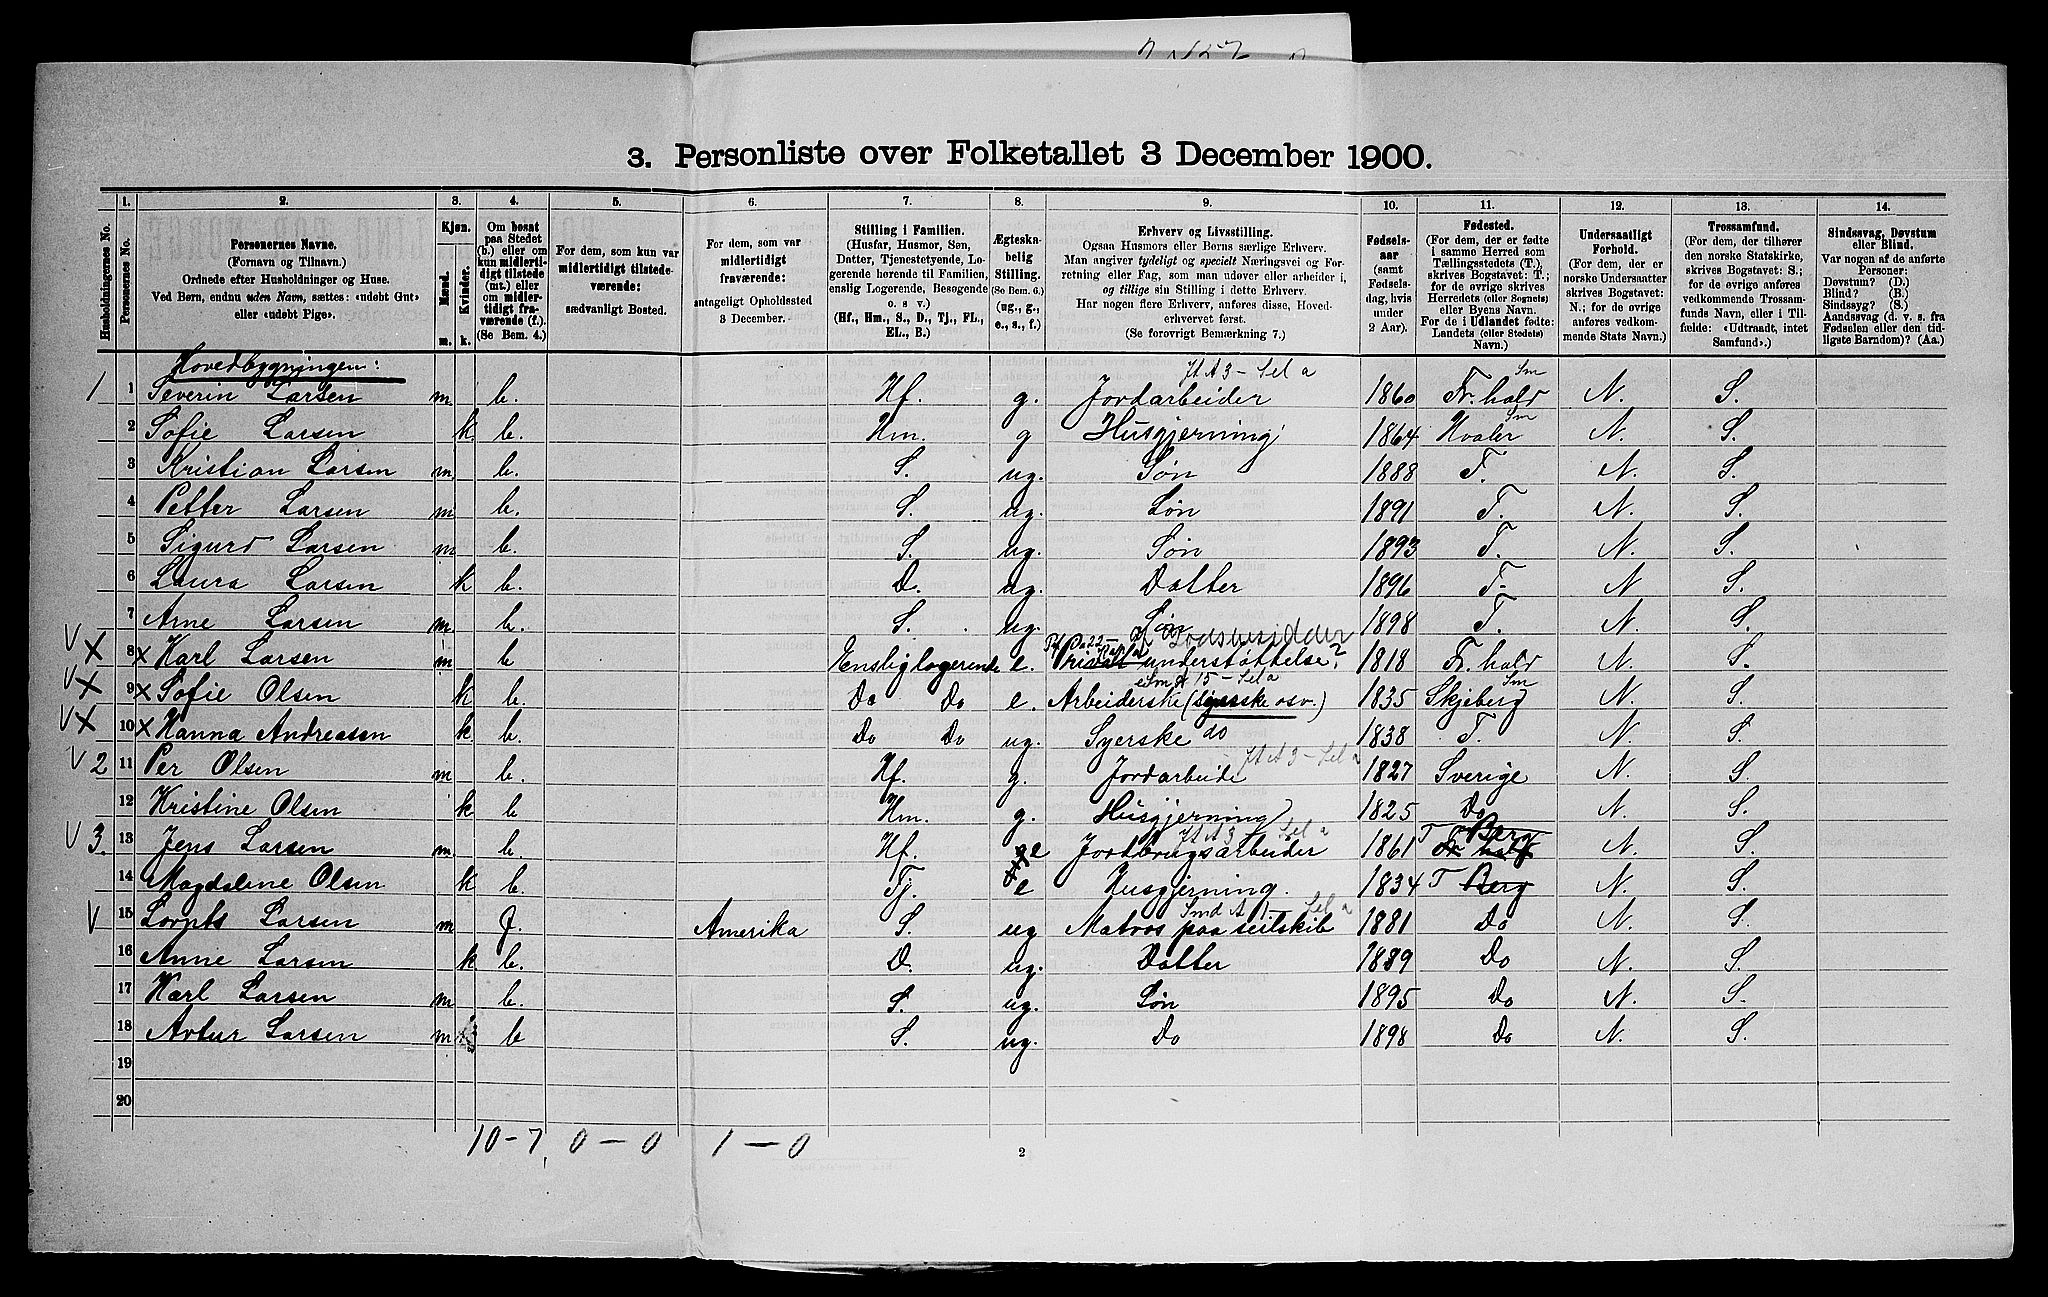 3. Personliste over Folketallet 3 December 1900.
Husholdningernes No.
1. Personernes No.
2. Personernes Navne.
(Fornavn og Tilnavn.)
Ordnede efter Husholdninger og Huse.
Ved Børn, endnu uden Navn, sættes: «udøbt Gut»
eller «udøbt Pige».
3. Kjøn.
Mænd. m.
Kvinder. k.
4. Om bosat
paa Stedet
(b.) eller om
kun midler-
tidigt tilstede
(mt.) eller
om midler-
tidigt fra-
værende (f.).
(Se Bem. 4.)
5. For dem, som kun var
midlertidigt tilstede-
værende:
sædvanligt Bosted.
6. For dem, som var
midlertidigt
fraværende:
antageligt Opholdssted
3 December.
7. Stilling i Familien.
(Husfar, Husmor, Søn,
Datter, Tjenestetyende, Lo-
gerende hørende til Familien,
enslig Logerende, Besøgende
o. s. v.)
(Hf., Hm., S., D., Tj., FL.,
EL., B.)
8. Ægteska-
belig
Stilling.
(Se Bem. 6.)
(ug., g.,
e., s., f.)
9. Erhverv og Livsstilling.
Ogsaa Husmors eller Børns særlige Erhverv.
Man angiver tydeligt og specielt Næringsvei og For-
retning eller Fag, som man udøver eller arbeider i,
og tillige sin Stilling i dette Erhverv.
Har nogen flere Erhverv, anføres disse, Hoved-
erhvervet først.
(Se forøvrigt Bemærkning 7.)
10. Fødsels-
aar
(samt
Fødsels-
dag, hvis
under
2 Aar).
11. Fødested.
(For dem, der er fødte
i samme Herred som
Tællingsstedets (T.),
skrives Bogstavet: T.;
for de øvrige skrives
Herredets (eller Sognets)
eller Byens Navn.
For de i Udlandet fødte:
Landets (eller Stedets)
Navn.)
12. Undersaatligt
Forhold.
(For dem, der er
norske Undersaatter
skrives Bogstavet:
N.; for de øvrige
anføres vedkom-
mende Stats Navn.)
13. Trossamfund.
(For dem, der tilhører
den norske Statskirke,
skrives Bogstavet: S.;
for de øvrige anføres
vedkommende Trossam-
funds Navn, eller i Til-
fælde: «Udtraadt, intet
Samfund».)
14. Sindssvag, Døvstum
eller Blind.
Var nogen af de anførte
Personer:
Døvstum? (D.)
Blind? (B.)
Sindssyg? (S.)
Aandssvag (d. v. s. fra
Fødselen eller den tid-
ligste Barndom)? (Aa.)
Hovedbygningen:
1 1 Severin Larsen m. b. Hf. g. Jordarbeider 1860 Fr.hald N. S.
2 Sofie Larsen k. b. Hm. g Husgjerning 1864 Hvaler N. S.
3 Kristian Larsen m. b. S. ug. Søn 1888 T. N. S.
4 Petter Larsen m b. S. ug. Søn 1891 T. N. S.
5 Sigurd Larsen m b. S. ug. Søn 1893 T. N. S.
6 Laura Larsen k b. D. ug. Datter 1896 T. N. S.
7 Arne Larsen m. b. S. ug. Søn 1898 T. N. S.
V X 8 X Karl Larsen m b Ensliglogerende e. Privat understøttelse? 1818 Fr.hald N. S.
V X 9 X Sofie Olsen k b. Do Do e. Arbeiderske (syerske osv.) 1835 Skjeberg N. S.
V X 10 X Hanna Andreasen k. b. Do Do ug. Syerske do 1838 T. N. S.
V 2 11 Per Olsen m b. Hf. g. Jordarbeide 1827 Sverige N. S.
12 Kristine Olsen k b Hm. g. Husgjerning 1825 Do N. S.
V 3. 13 Jens Larsen m. b. Hf. e Jordbrugsarbeider 1861 T Fr hald Berg N. S.
14 Magdalene Olsen k b. Tj. e Husgjerning. 1834 T Berg N. S.
V 15 Larsen m f. Amerika S. ug Matros paa seilskib 1881 Do N. S.
16 Anne Larsen k b. D. ug. Datter 1889 Do N. S.
17 Karl Larsen m b. S. ug. Søn 1895 Do N. S.
18 Artur Larsen m b S. ug. Do 1898 Do N. S.
19
20
10-7, 0-0 1-0
2